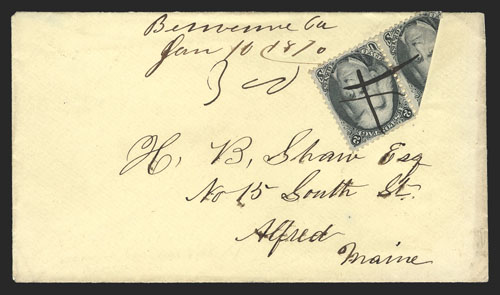 Benvenue Ca
Jan 10 1870
H, B, Shaw Esq
No 15 South St.
Alfred
Maine